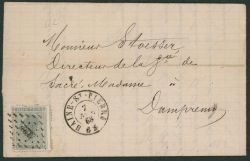 Monsieur Stoesser
Directeur de la Sté de
Sacré-Madame à
Dampremy
HAINE-ST-PIERRE
7
68